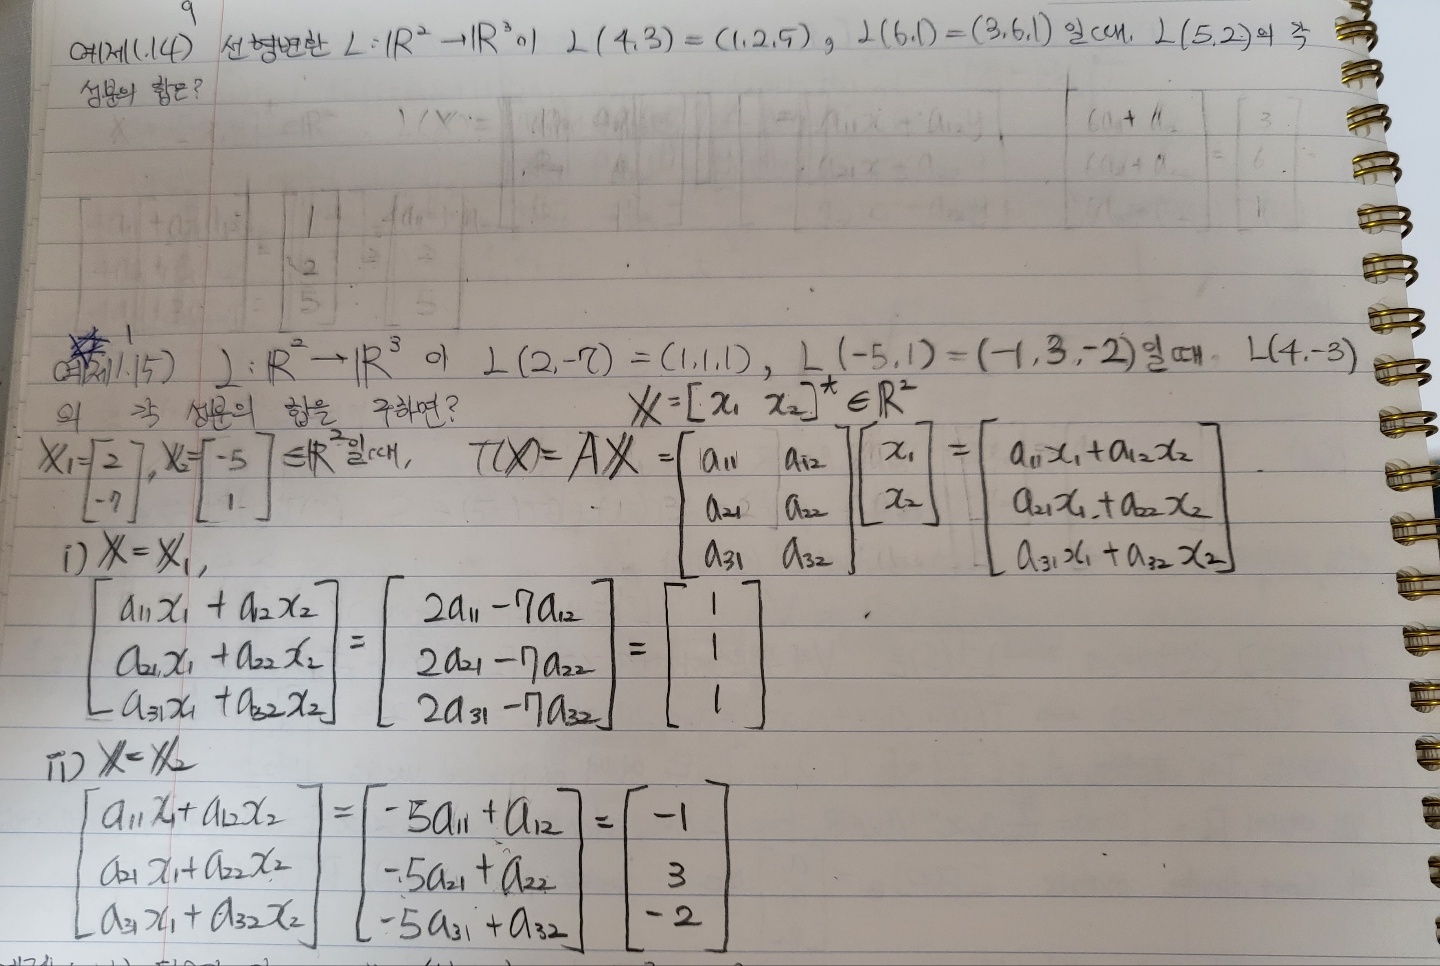 9
예제1.14) 선형변환 L:ℝ² → ℝ³이 L(4,3) = (1,2,5), L(6,1) = (3,6,1)일때. L(5,2)의 각
성분의 합은?
1
예제1.15) L:ℝ² → ℝ³ 이 L(2,-7) = (1,1,1), L(-5,1) = (-1,3,-2)일때. L(4,-3)
의 각 성분의 합을 구하면? X = [x₁ x₂]* ∈ ℝ²
X₁ = [2 -7], X₂ = [-5 1] ∈ ℝ²일때, T(X) = AX = [a₁₁ a₁₂ a₂₁ a₂₂ a₃₁ a₃₂] [x₁ x₂] = [a₁₁x₁+a₁₂x₂ a₂₁x₁+a₂₂x₂ a₃₁x₁+a₃₂x₂]
i) X = X₁,
[a₁₁x₁ + a₁₂x₂] = [2a₁₁ - 7a₁₂] = [1]
[a₂₁x₁ + a₂₂x₂] = [2a₂₁ - 7a₂₂] = [1]
[a₃₁x₁ + a₃₂x₂] = [2a₃₁ - 7a₃₂] = [1]
ii) X = X₂
[a₁₁x₁ + a₁₂x₂] = [-5a₁₁ + a₁₂] = [-1]
[a₂₁x₁ + a₂₂x₂] = [-5a₂₁ + a₂₂] = [3]
[a₃₁x₁ + a₃₂x₂] = [-5a₃₁ + a₃₂] = [-2]